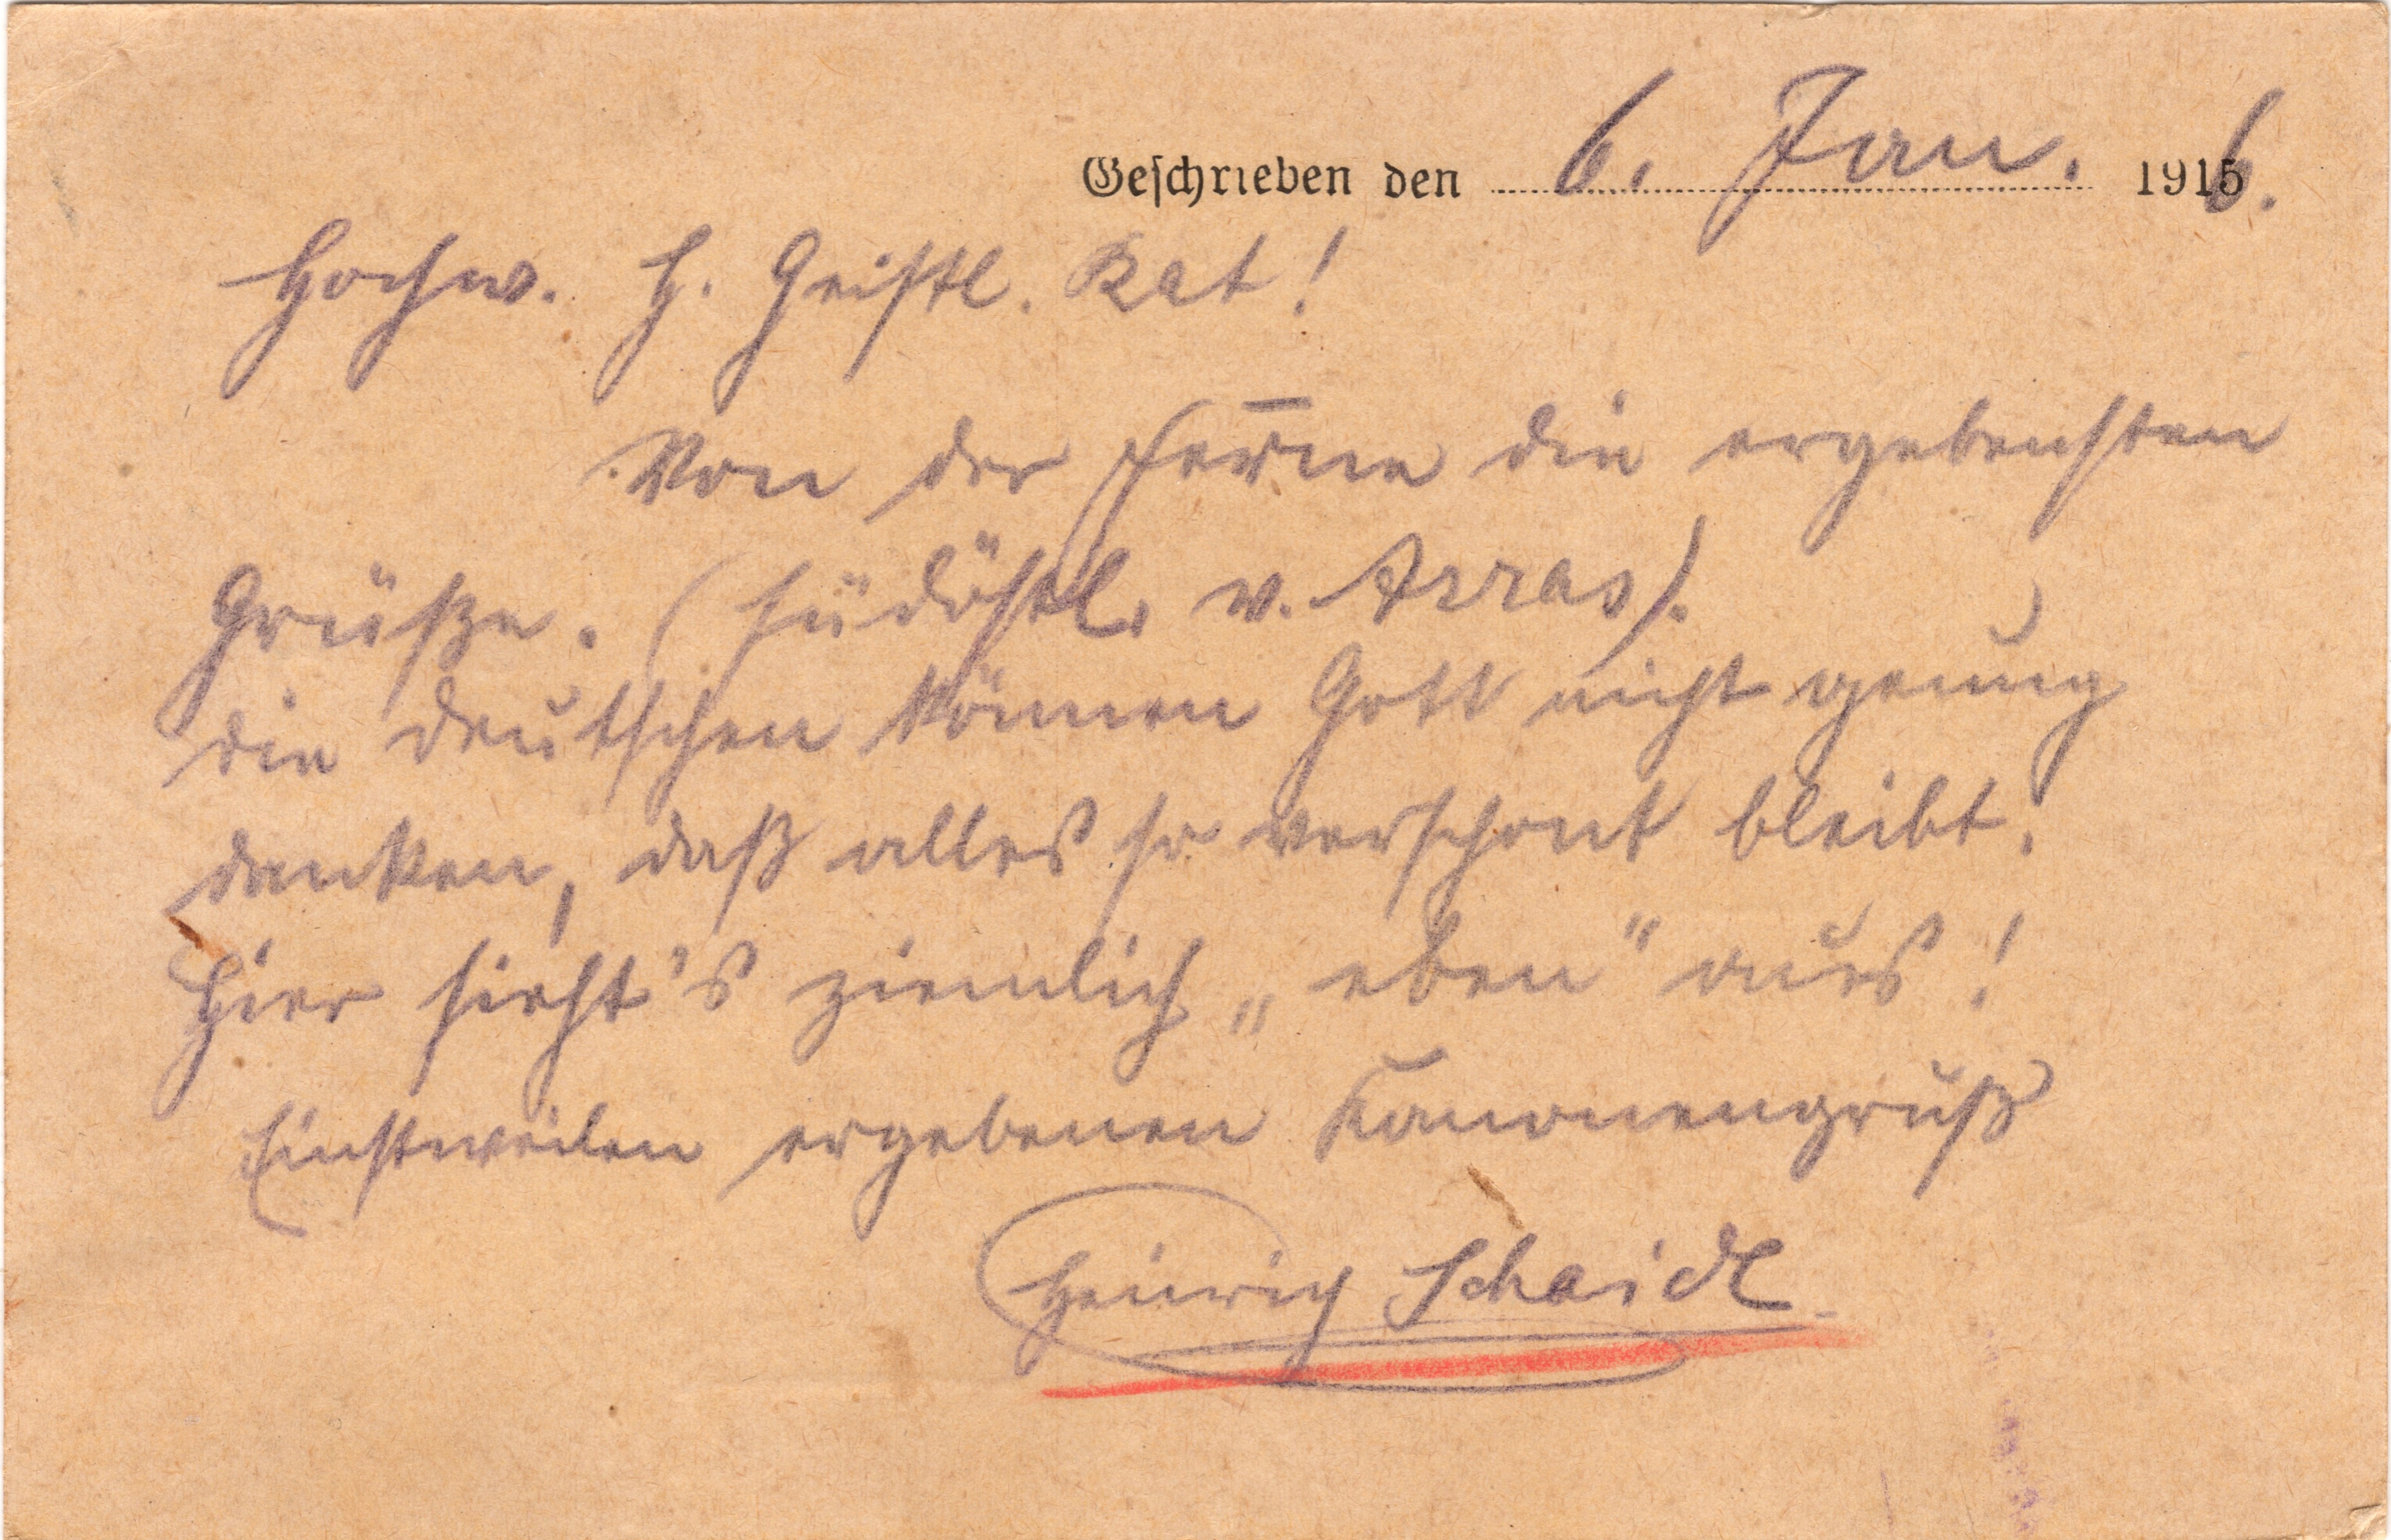 Geschrieben den 6. Jan. 1916.
Hochw. H. Geistl. Rat!
Von der Ferne die ergebensten
Grüße. (südöstl. v. Arras).
die deutschen können Gott nicht genug
danken, daß alles so verschont bleibt.
Hier sieht's ziemlich „eben“ aus!
Einstweilen ergebenen Kanonengruß
Heinrich Schaidl.